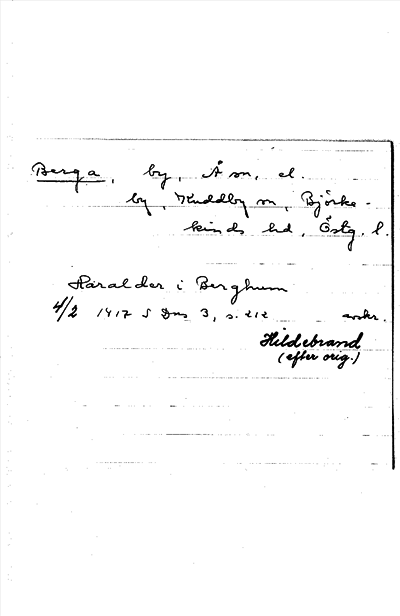 Berga, by, Å sn, el.
by, Kuddby sn, Björke-
kinds hd, Östg. l.
Haralder i Berghum
4/2 1417 S Dns 3, s. 212 avskr.
Hildebrand
(efter orig.)